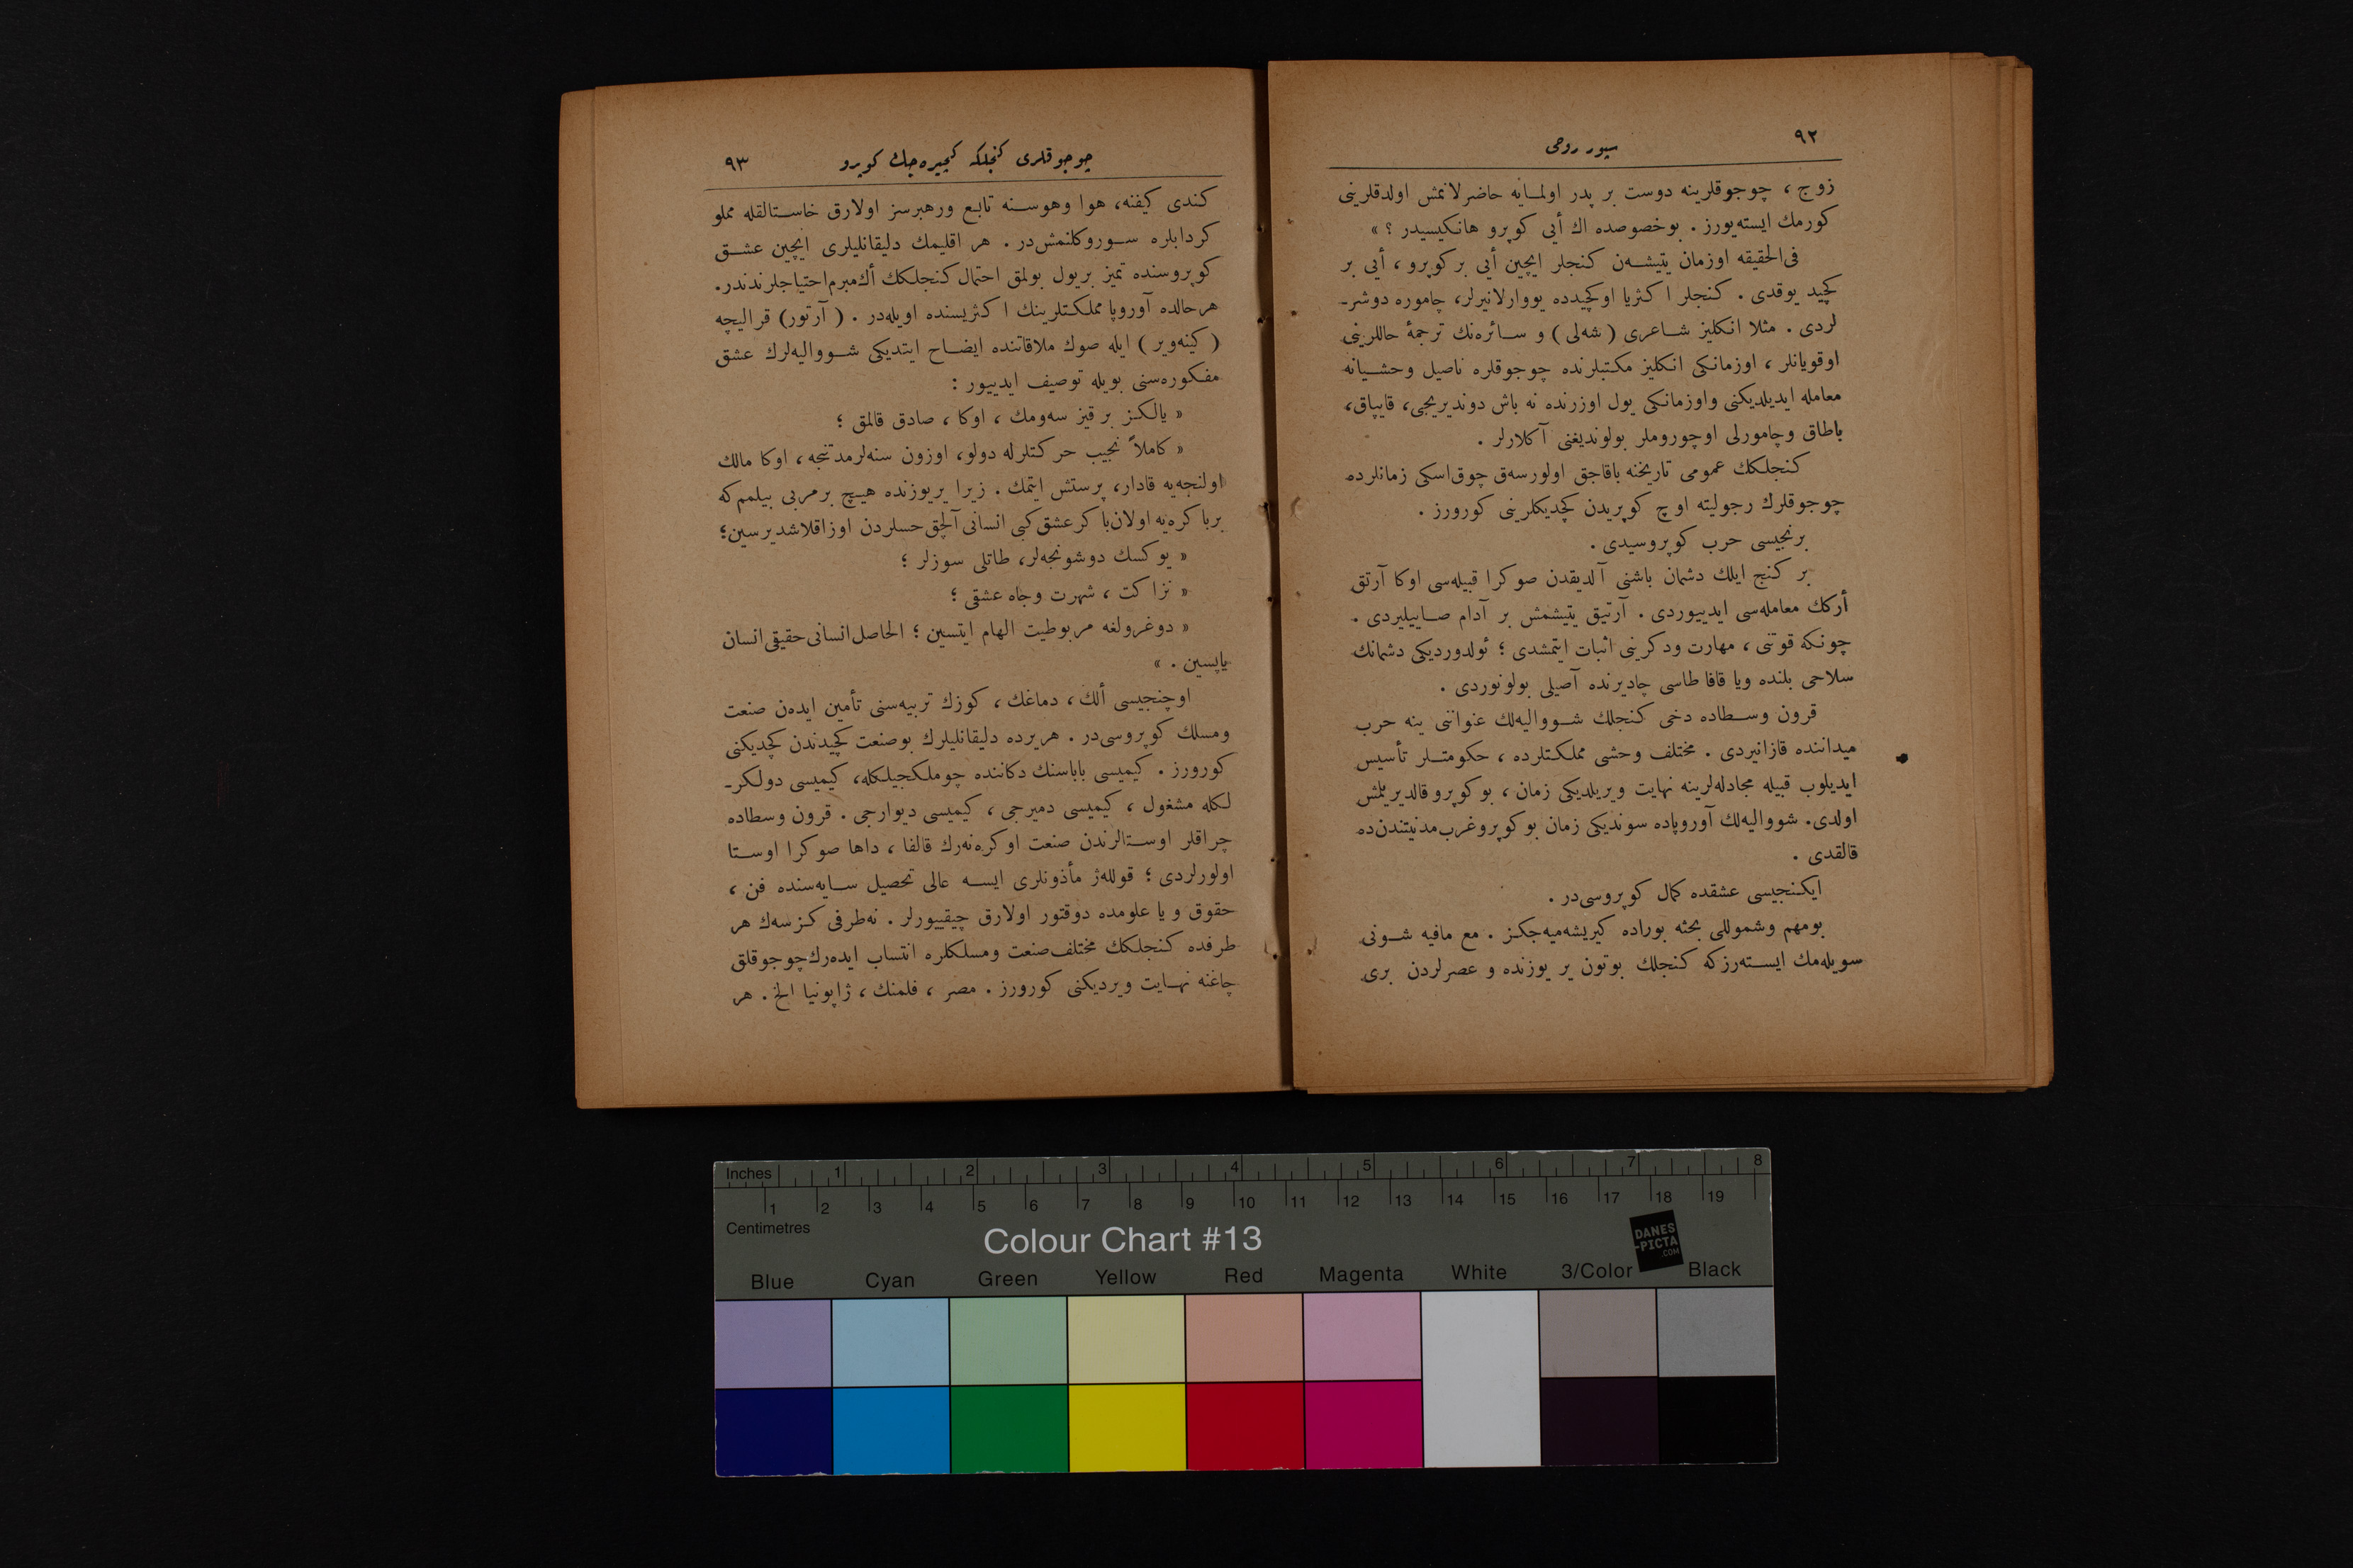 ٩٢
سپور روحی
زوج ، چوجوقلرینه دوست بر پدر اولمـایه حاضرلانمش اولدقلرینی
کورمك ایسته‌یورز . بوخصوصده اك أیی کوپرو هانکیسیدر ؟ »
فی‌الحقیقه اوزمان یتیشـه‌ن کنجلر ایچین أیی بر کوپرو ، أیی بر
کچید یوقدی . کنجلر اکثریا اوکچیدده یووارلانیرلر، چاموره دوشر-
لردی . مثلا انکلیز شـاعری ( شه‌لی ) و سـائره‌نك ترجمهٔ حاللرینی
اوقویانلر ، اوزمانکی انکلیز مکتبلرنده چوجوقلره ناصیل وحشـیانه
معامله ایدیلدیکنی واوزمانکی یول اوزرنده نه باش دوندیریجی، قایپاق،
باطاق وچامورلی اوچوروملر بولوندیغنی آکلارلر .
کنجلکك عمومی تاریخنه باقاجق اولورسه‌ق چوق‌اسکی زمانلرده
چوجوقلرك رجولیته اوچ کوپریدن کچدیکلرینی کورورز .
برنجیسی حرب کوپروسیدی .
بر کنج ایلك دشمان باشنی آلدیقدن صوکرا قبیله‌سی اوکا آرتق
أرکك معامله‌سی ایدییوردی . آرتیق یتیشمش بر آدام صـاییلیردی .
چونکه قوتنی ، مهارت ودکرینی اثبات ایتمشدی ؛ ئولدوردیکی دشمانك
سلاحی بلنده ویا قافا طاسی چادیرنده آصیلی بولونوردی .
قرون وسـطاده دخی کنجلك شـووالیه‌لك عنواننی ینه حرب
میداننده قازانیردی . مختلف وحشی مملکتلرده ، حکومتـلر تأسیس
ایدیلوب قبیله مجادله‌لرینه نهایت ویریلدیکی زمان ، بو کوپرو قالدیریلمش
اولدی. شووالیه‌لك آوروپاده سوندیکی زمان بوکوپروغرب‌مدنیتندن‌ده
قالقدی .
ایکنجیسی عشقده کمال کوپروسی‌در .
بومهم وشموللی بحثه بوراده کیریشه‌میه‌جکز . مع مافیه شـونی
سویله‌مك ایسـته‌رزکه کنجلك بوتون یر یوزنده و عصرلردن بری
چوجوقلری کنجلکه کچیره‌جك کوپرو
٩٣
کندی کیفنه، هوا وهوسـنه تابع ورهبرسز اولارق خاسـتالقله مملو
کردابلره سـوروکلنمش‌در . هر اقلیمك دلیقانلیلری ایچین عشـق
کوپروسنده تمیز بریول بولمق احتمال کنجلکك أك‌مبرم‌احتیاجلرندندر.
هرحالده آوروپا مملکتلرینك اکثریسنده اویله‌در . ( آرتور) قرالیچه
( کینه‌ویر ) ایله صوك ملاقاتنده ایضـاح ایتدیکی شـووالیه‌لرك عشق
مفکوره‌سنی بویله توصیف ایدییور :
« یالکز بر قیز سه‌ومك ، اوکا ، صادق قالمق ؛
« کاملاً نجیب حرکتلرله دولو، اوزون سنه‌لرمدتنجه ، اوکا مالك
اولنجه‌یه قادار، پرستش ایتمك . زیرا یریوزنده هیـچ برمربی بیلمم‌که
برباکره‌یه اولان‌باکرعشق‌کبی انسانی‌آلچق‌حسلردن اوزاقلاشدیرسین؛
« یوکسك دوشونجه‌لر، طاتلی سوزلر ؛
« نزاکت ، شهرت وجاه عشقی ؛
« دوغرولغه مربوطیت الهام ایتسین ؛ الحاصل‌انسانی‌حقیقی‌انسان
یاپسین . »
اوچنجیسی ألك ، دماغك ، کوزك تربیه‌سنی تأمین ایده‌ن صنعت
ومسلك کوپروسی‌در . هریرده دلیقانلیلرك بوصنعت کچیدندن کچدیکنی
کورورز . کیمیسی باباسنك دکاننده چوملکجیلکله، کیمیسی دولکر-
لکله مشغول ، کیمیسی دمیرجی ، کیمیسی دیوارجی . قرون وسطاده
چراقلر اوسـتالرندن صنعت اوکره‌نه‌رك قالفا ، داها صوکرا اوسـتا
اولورلردی ؛ قولله‌ژ مأذونلری ایسـه عالی تحصیل سـایه‌سنده فن ،
حقوق و یا علومده دوقتور اولارق چیقییورلر . نه‌طرفی کزسه‌ك هر
طرفده کنجلکك مختلف‌صنعت ومسلکلره انتساب ایده‌رك‌چوجوقلق
چاغنه نهـایت ویردیکنی کورورز . مصر ، فلمنك ، ژاپونیا الخ . هر
Inches 1 2 3 4 5 6 7 8
1 2 3 4 5 6 7 8 9 10 11 12 13 14 15 16 17 18 19
Centimetres
Colour Chart #13
DANES
-PICTA
.COM
Blue Cyan Green Yellow Red Magenta White 3/Color Black